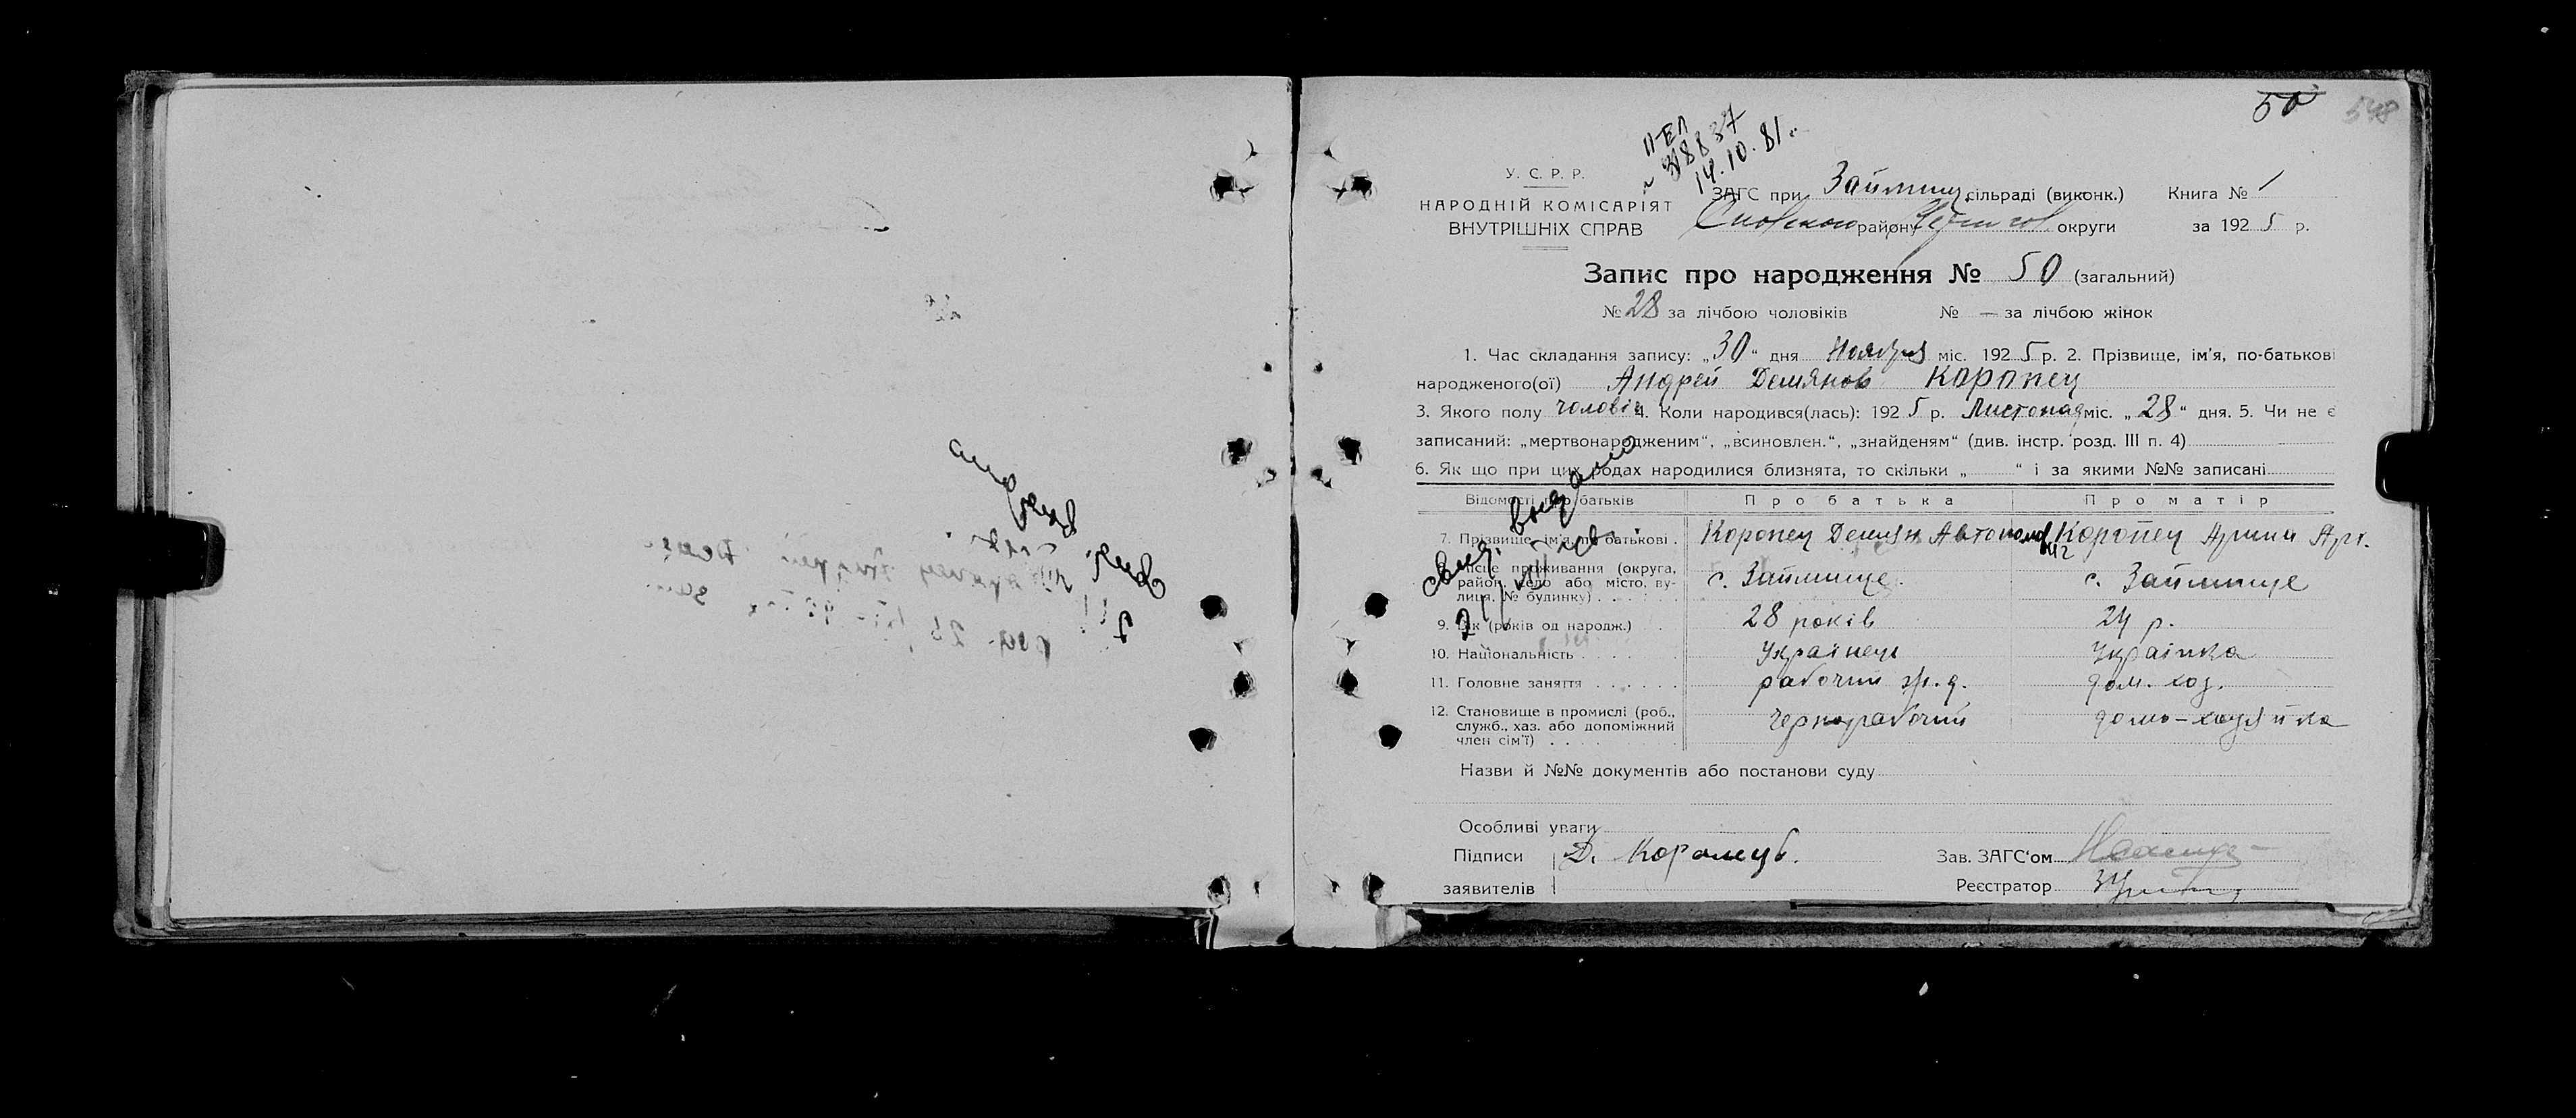 50 548
II-ЕЛ
№ 318837
14.10.81.
У. С. Р. Р.
НАРОДНІЙ КОМІСАРІЯТ
ВНУТРІШНІХ СПРАВ
ЗАГС при Займищ. сільраді (виконк.) Книга № 1
Сновського району Черниговс округи за 1925 р.
Запис про народження № 50 (загальний)
№ 28 за лічбою чоловіків № — за лічбою жінок
1. Час складання запису: „30“ дня Ноября міс. 1925 р. 2. Прізвище, ім'я, по-батькові
народженого(ої) Андрей Демянов Коропец
3. Якого полу чоловіч 4. Коли народився(лась): 1925 р. Листопад міс. „28“ дня. 5. Чи не є
записаний: „мертвонародженим“, „всиновлен.“, „знайденям“ (див. інстр. розд. III п. 4)
6. Як що при цих родах народилися близнята, то скільки „ “ і за якими №№ записані
Відомості про батьків Про батька Про матір
7. Прізвище, ім'я, по батькові . Коропец Демян Автономович Коропец Арина Арт.
8. Місце проживання (округа, район, село або місто, вулиця, № будинку) с. Займище с. Займище
9. Вік (років од народж.) 28 років 24 р.
10. Національність Українец Українка
11. Головне заняття рабочий дом. хоз.
12. Становище в промислі (роб., чернорабочий домо-хазяйка
служб., хаз. або допоміжний
член сім'ї)
свид. видано
Назви й №№ документів або постанови суду
Особливі уваги
Підписи Д. Коропець. Зав. ЗАГС'ом
заявителів Реєстратор